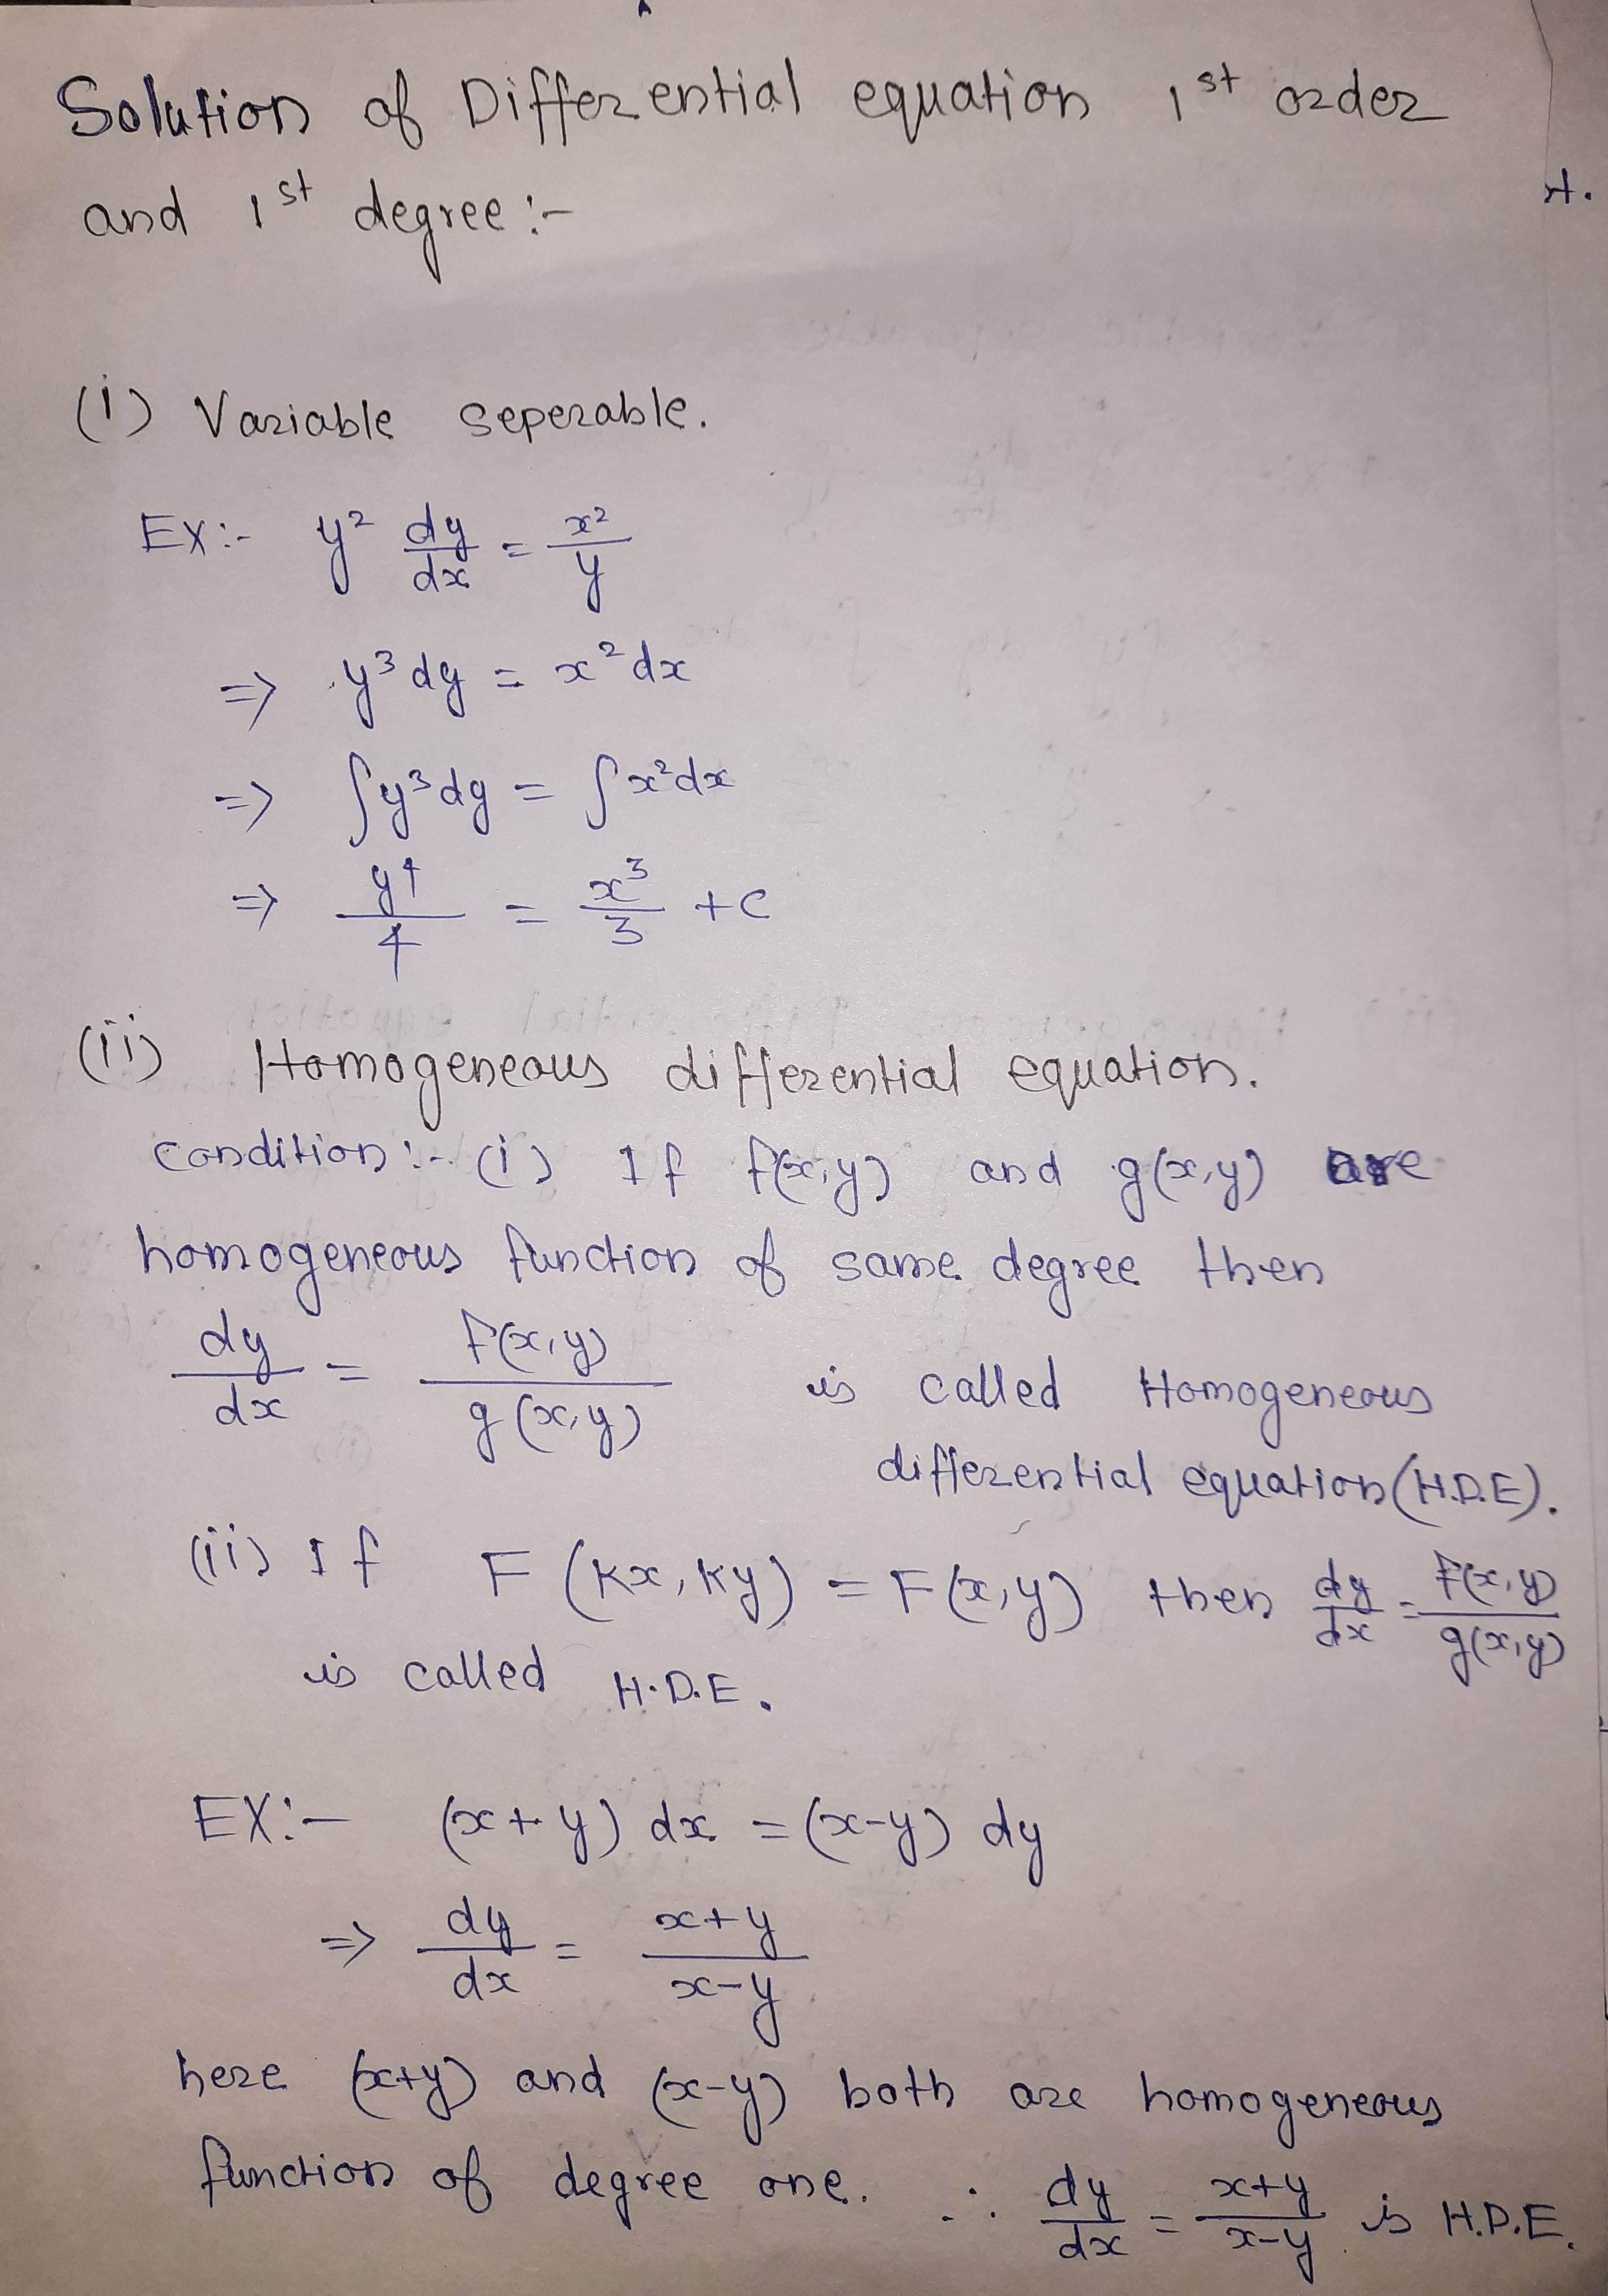 Solution of Differential equation 1st order
and 1st degree :-
(i) Variable seperable.
EX:- y² dy/dx = x²/y
=> y³ dy = x² dx
=> ∫y³ dy = ∫x² dx
=> y⁴/4 = x³/3 + c
(ii) Homogeneous differential equation.
Condition :- (i) If f(x,y) and g(x,y) are
homogeneous function of same degree then
dy/dx = f(x,y)/g(x,y) is called Homogeneous
differential equation (H.D.E).
(ii) If F(kx, ky) = F(x,y) then dy/dx = f(x,y)/g(x,y)
is called H.D.E.
EX:- (x+y) dx = (x-y) dy
=> dy/dx = x+y/x-y
here (x+y) and (x-y) both are homogeneous
function of degree one. ∴ dy/dx = x+y/x-y is H.D.E.